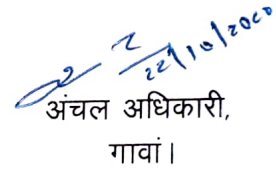 22/10/2020
अंचल अधिकारी,
गावां।